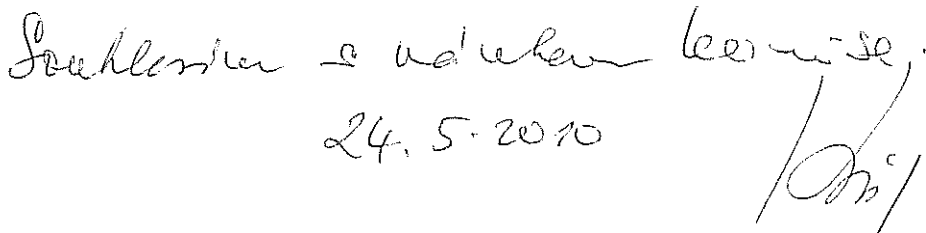 Souhlasím s návrhem komise.
24. 5. 2010